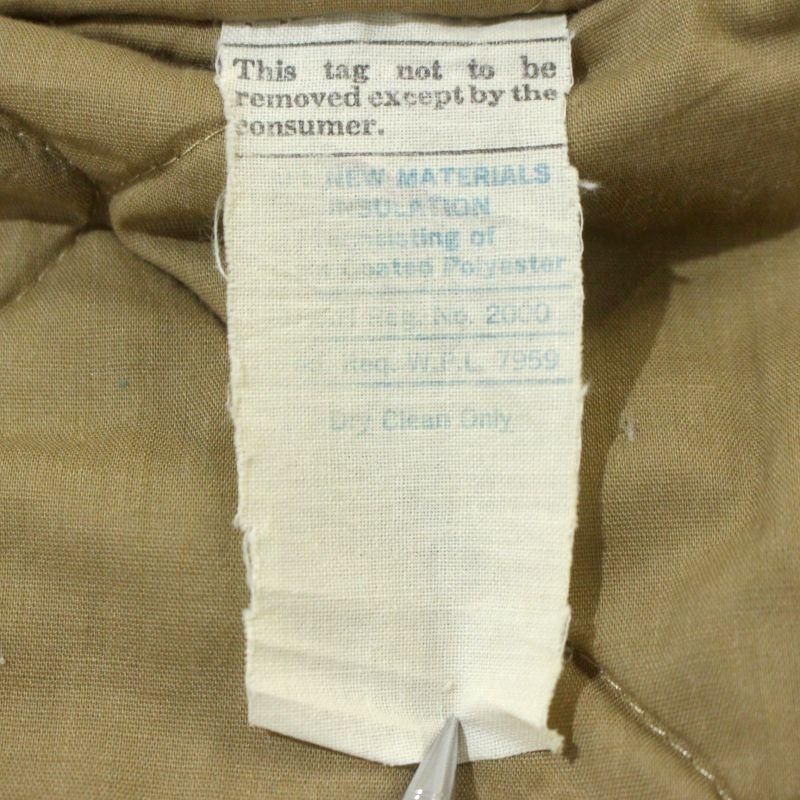 This tag not to be
removed except by the
consumer.
ALL NEW MATERIALS
INSULATION
Consisting of
Coated Polyester
Reg. No. 2000
Reg. W.P.L. 7959
Dry Clean Only